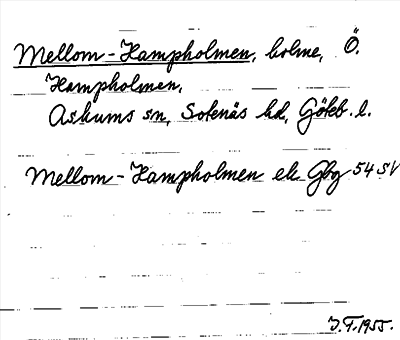 Mellom-Hampholmen, holme, Ö.
Hampholmen,
Askums sn, Sotenäs hd, Göteb. l.
Mellom-Hampholmen ek. Gbg 54 SV
J.F. 1955.